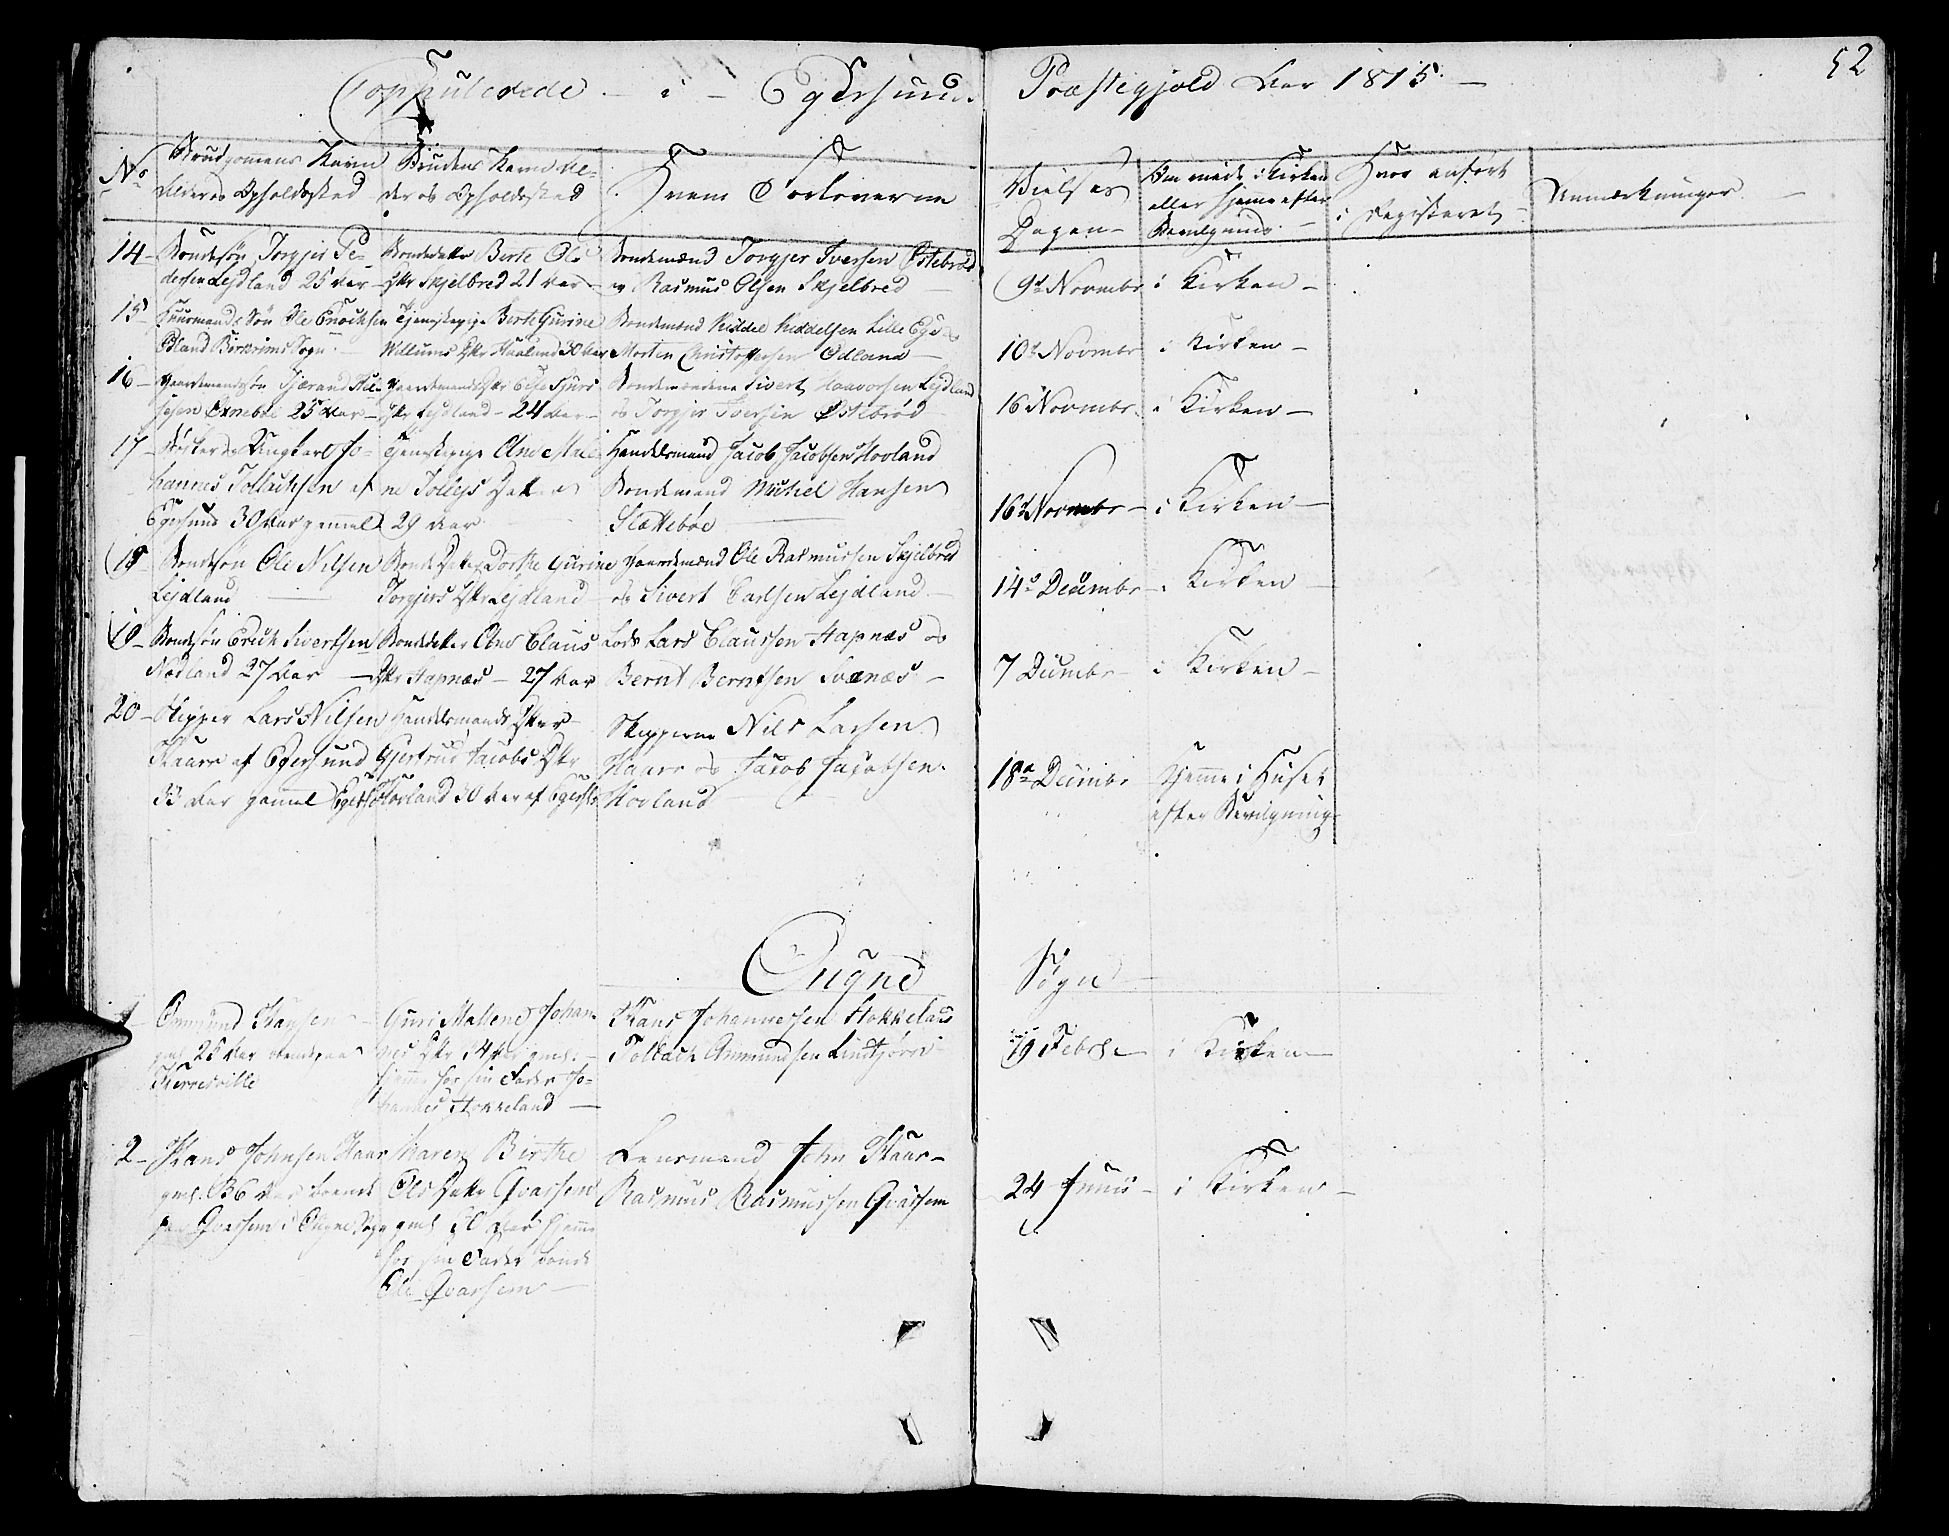 52
Coppulerede i Egersund Præstegjæld Aar 1815
No
Brudgomens Navn
Alder og Opholdssted
Brudens Navn Al-
der og Opholdssted
Hvem Forloverne
Vielses
Dagen
Om viede i Kirken
eller hjeme efter
Bevilgning
Hvor anført
i Registeret
Anmærkninger
14 Bondesøn Torgjer Pe-
dersen Lejdland 25 Aar
Bondedatter Berte Ols
Dtr Skjelbred 21 Aar
Bondemænd Torgjer Iversen Østebrød
og Rasmus Olsen Skjelbred
9de Novmbr i Kirken
15 Huusmands Søn Ole Enochsen
Ødland Birkrims Sogn
Tjenestepige Berte Gurine
Willums Dtr 30 Aar
Bondemænd Kiddel Kiddelsen Lille Ege
Morten Christophersen Ødland
10de Novmbr i Kirken
16 Gaardmandssøn Tjærand
25 Aar
Gaardmands Dtr
Dtr Lejdland 24 Aar
Bondemændene Sivert Haavorsen Lejdland
og Torgjer Iversen Østebrød
16 Novmbr i Kirken
17 Ungkarl Jo-
hannes Tollachsen af
Egersund 30 Aar gamel
Tjenestepige Ane Mal
ne Tollejs Datter
29 Aar
Handelsmand Jacob Jacobsen Hovland
Bondemand Michel Hansen
Slettebøe
16de Novmbr i Kirken
18 Bondesøn Ole Nilsen
Lejdland
Bonde Datter Dorthe Gurine
Torgjers Dtr Lejdland
Gaardmænd Ole Rasmussen Skjelbred
og Sivert Carlsen Lejdland
14de Decembr i Kirken
19 Bondesøn Erich Sivertsen
Nødland 27 Aar
Bondedatter Ane Claus
Dtr Hapnæs 27 Aar
Lods Lars Claussen Hapnæs og
Bernt Berntsen Svanæs
7 Decmbr i Kirken
20 Skipper Lars Nilsen
Haare af Egersund
33 Aar gammel
Handelsmands Dtter
Gjertrud Jacobs Dtr
Hovland 30 Aar af Egersd
Skipperne Nils Larsen
Haare og Jacob Jacobsen
Hovland
18de Decmbr Hjemme i Huset
efter Bevilgning
Ougne Sogn
1 Ommund Hansen
gml 28 Aar
Guri Mallene Johan-
nes Dtr 34 Aar gml.
hjemme hos sin Fader Jo-
hannes Hokkeland
Hans Johannessen Hokkeland
Tollach Ommundsen
19 Febr i Kirken
2 Hans Johnsen Haar
gml. 36 Aar boende
paa Qvassem i Ougne Sogn
Karen Birthe
Ols Datter Qvassem
gml 30 Aar hjemme
hos sin Fader Bonde
Ole Qvassem
Lensmand John Haar
Rasmus Rasmussen Qvassem
24 Junii i Kirken